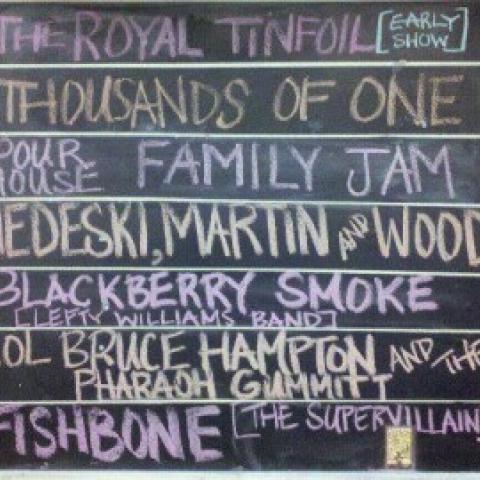 THE ROYAL TINFOIL [EARLY SHOW]
THOUSANDS OF ONE
POUR HOUSE FAMILY JAM
MEDESKI, MARTIN AND WOOD
BLACKBERRY SMOKE
[LEFTY WILLIAMS BAND]
COL BRUCE HAMPTON AND THE
PHARAOH GUMMITT
FISHBONE [THE SUPERVILLAIN